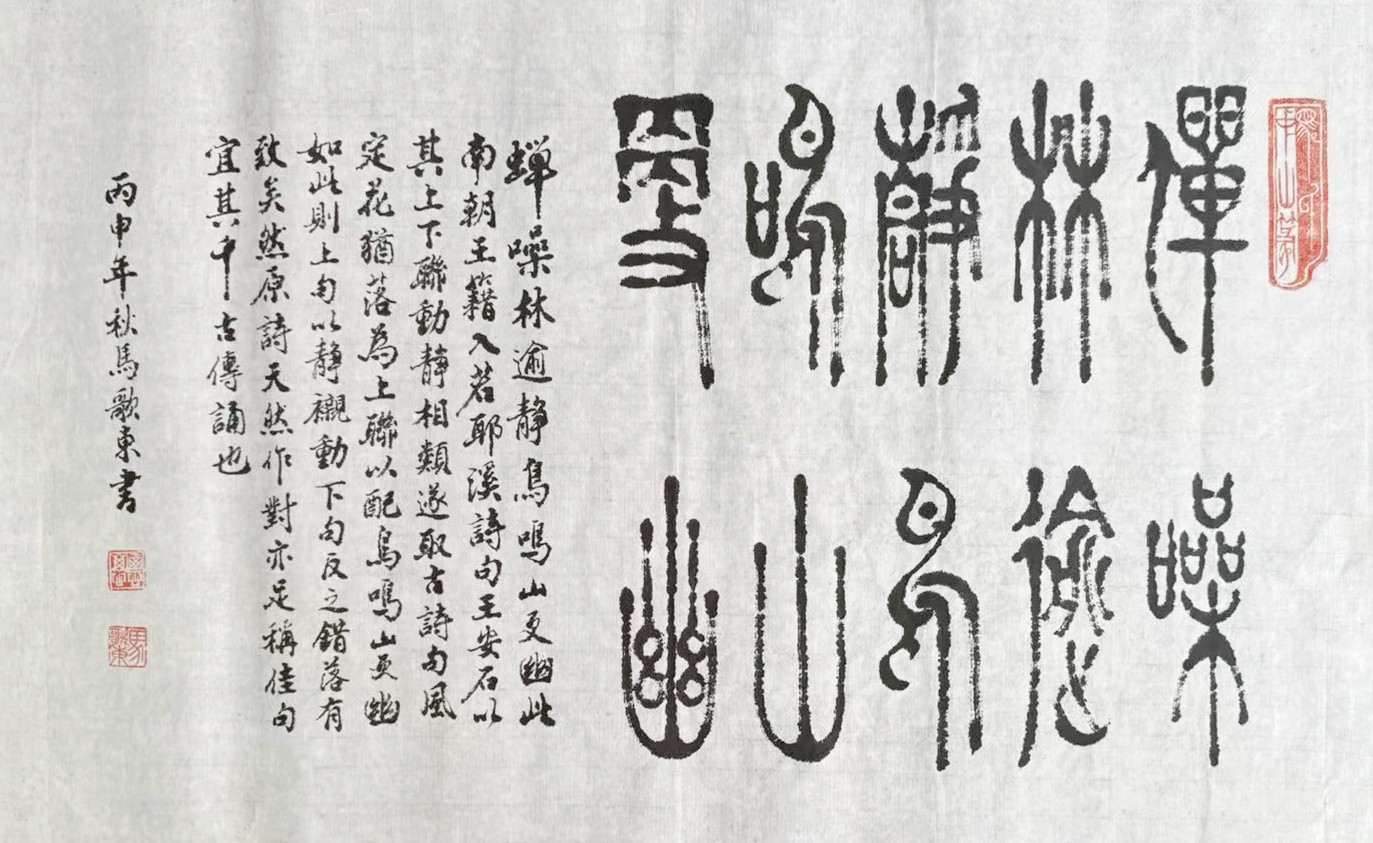 蟬噪
林逾
靜鳥
鳴山
更幽
蟬噪林逾靜鳥鳴山更幽此
南朝王籍入若耶溪詩句王安石以
其上下聯動靜相類遂取古詩句風
定花猶落為上聯以配鳥鳴山更幽
如此則上句以靜襯動下句反之錯落有
致矣然原詩天然作對亦足稱佳句
宜其千古傳誦也
丙申年秋馬歌東書
馬歌東